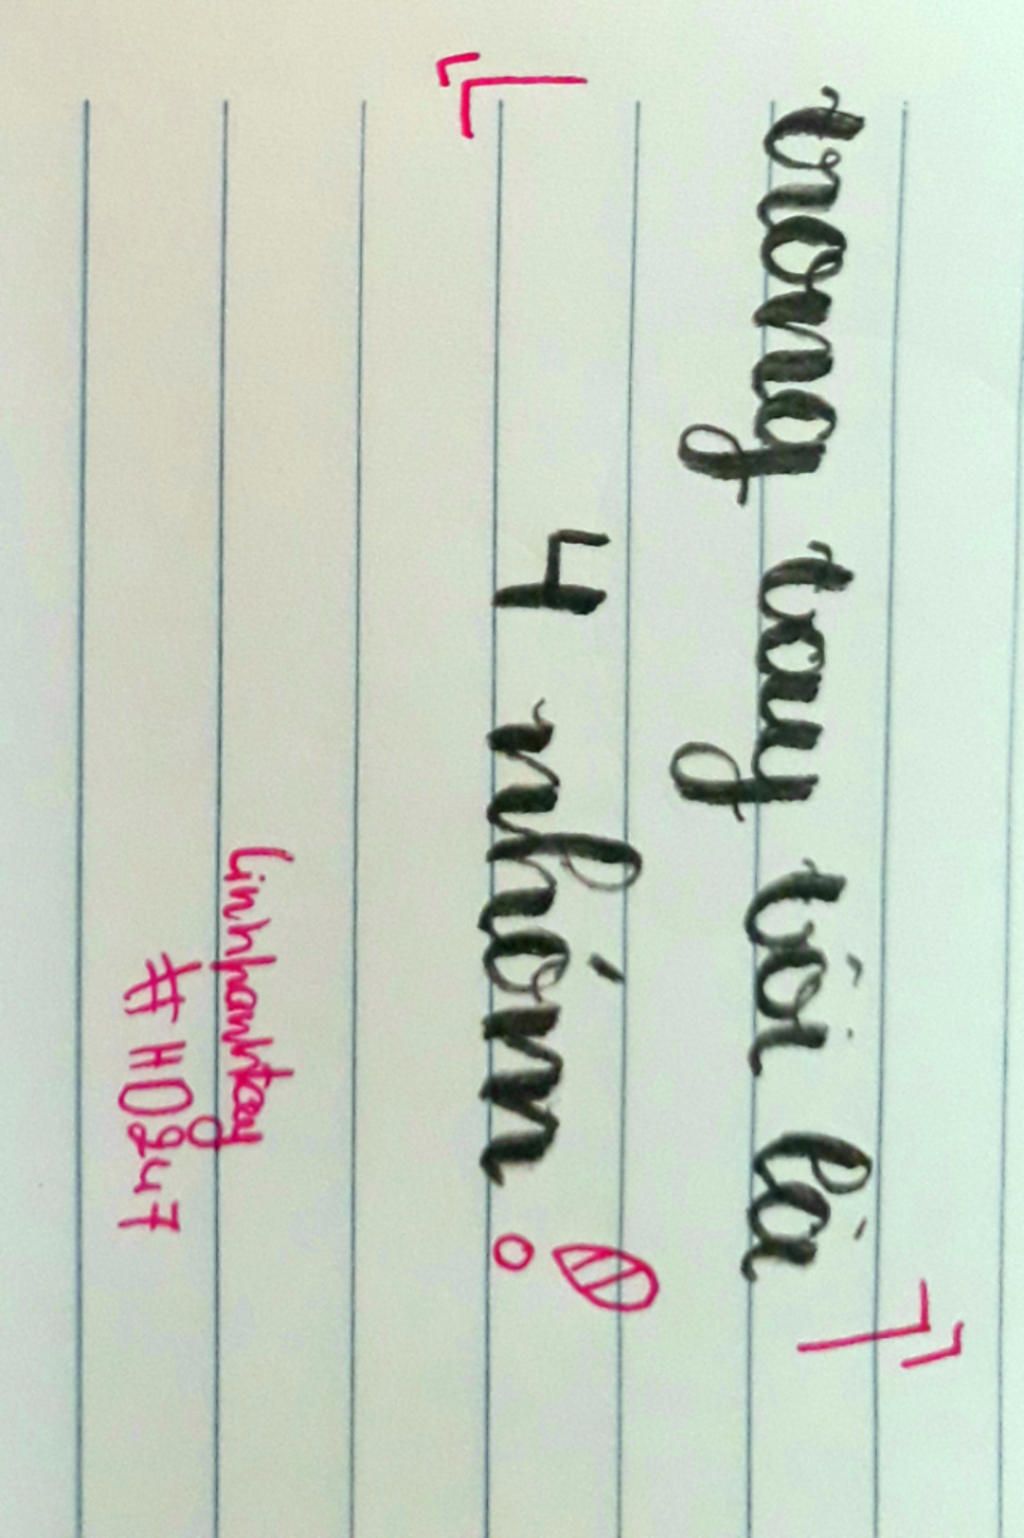 trong tay tôi là
4 nhóm!
Linhhanhtay
#HD247